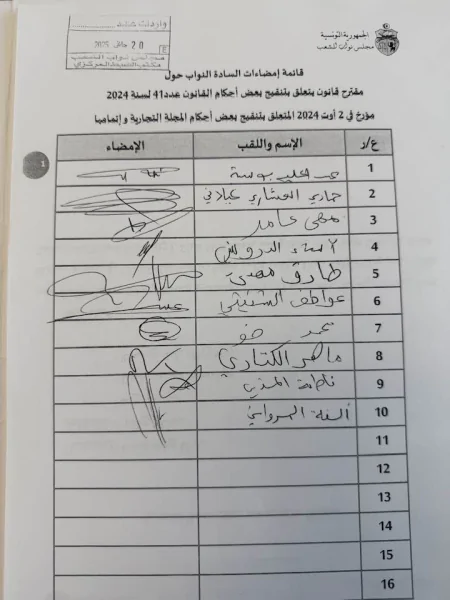 الجمهورية التونسية
مجلس نواب الشعب
واردات عدد
20 2025
مجلس نواب الشعب
مكتب الضبط المركزي
قائمة إمضاءات السادة النواب حول
مقترح قانون يتعلق بتنقيح بعض أحكام القانون عدد41 لسنة 2024
مؤرخ في 2 أوت 2024 المتعلق بتنقيح بعض أحكام المجلة التجارية وإتمامها
ع/ر الإسم واللقب الإمضاء
1
1
2
3 مهى عامر
4 الدرويش
5 طارق مهدي
6 عواطف الشنيتي
7 محمد ضو
8 ماهر الكتاري
9 فاطمة المسدي
10
11
12
13
14
15
16